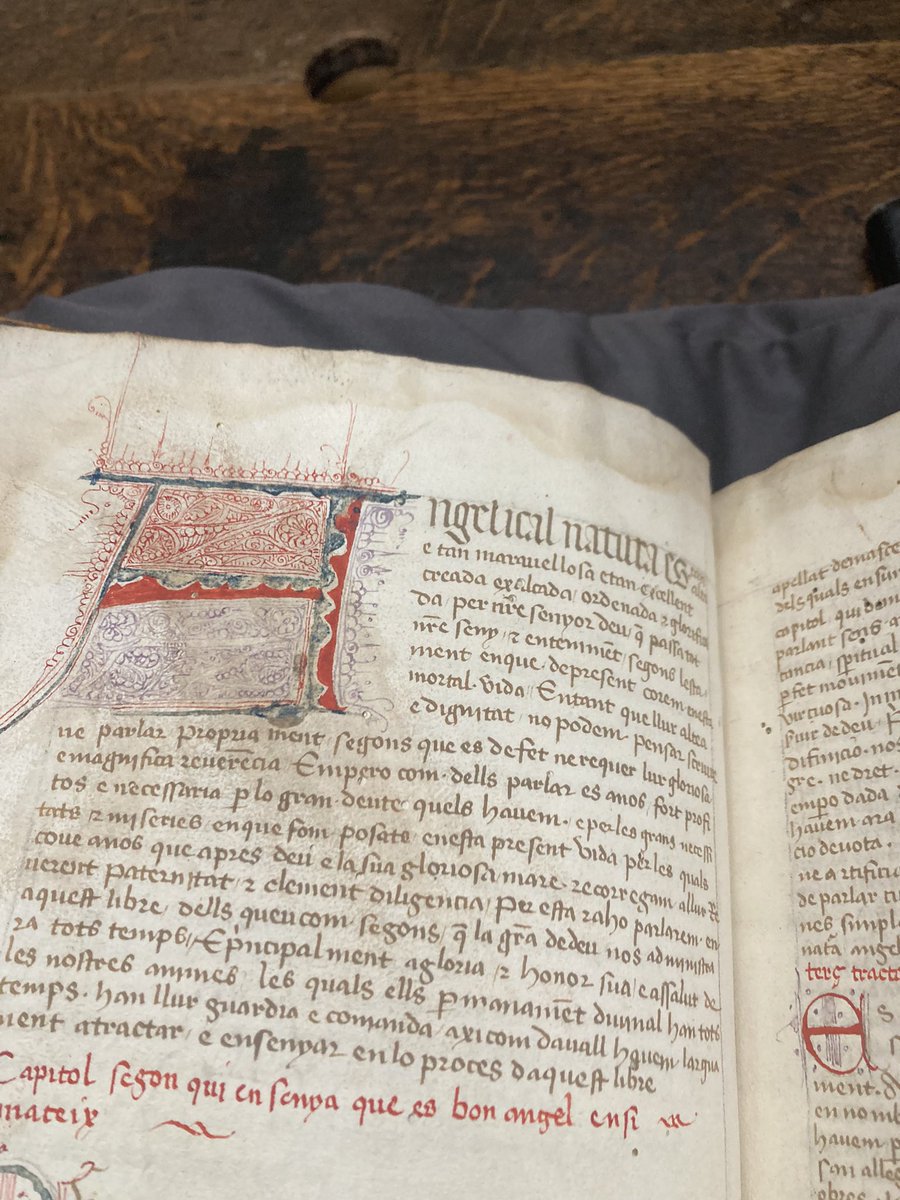 Angelical natura es
e tan maravellosa e tan excellent
creada exalçada / ordenada ⁊ glorifica
da / per nr̃e senyor deu / q̃ passa tot
nr̃e seny / ⁊ enteniment / segons lesta
ment en que de present corem en esta
mortal vida / E ntant que llur altea
e dignitat / no podem pensar scriure
ne parlar propriament segons que es de fet ne requer lur gloriosa
e magnifica reverẽcia Empero com dells parlar es a nos fort profi
tos e necessaria p lo gran deute quels havem e per les grans necessi
tats ⁊ miseries en que som posats en esta present vida per les quals
cove a nos que apres deu e la sua gloriosa mare recorregam a llur Re
verent paternitat ⁊ clement diligencia / Per esta raho parlarem en
aquest libre dells queucom segons / q̃ la gr̃a de deu nos administra
ra tots temps / E p̃ncipalment a gloria / ⁊ honor sua / e a ssalut de
les nostres animes les quals ells p manamẽt divinal han tots
temps han llur guardia e comanda / axi com davall havem largua
ment a tractar / e ensenyar en lo proces daquest libre
Capitol segon qui ensenya que es bon angel en si
mateix
apellat de
dels quals en sun
capitol qui
parlant sens
tancia / spiritual
p̃fet movimẽt
virtuosa
fuir de deu
difinicio nos
gre ne dret
emp̃o dada
havem ara
cio devota
ne artifici
de parlar
nes simpl
nat̃a angel
terç tracta
E s
ment
en nomb
havem p
san alleg
obres